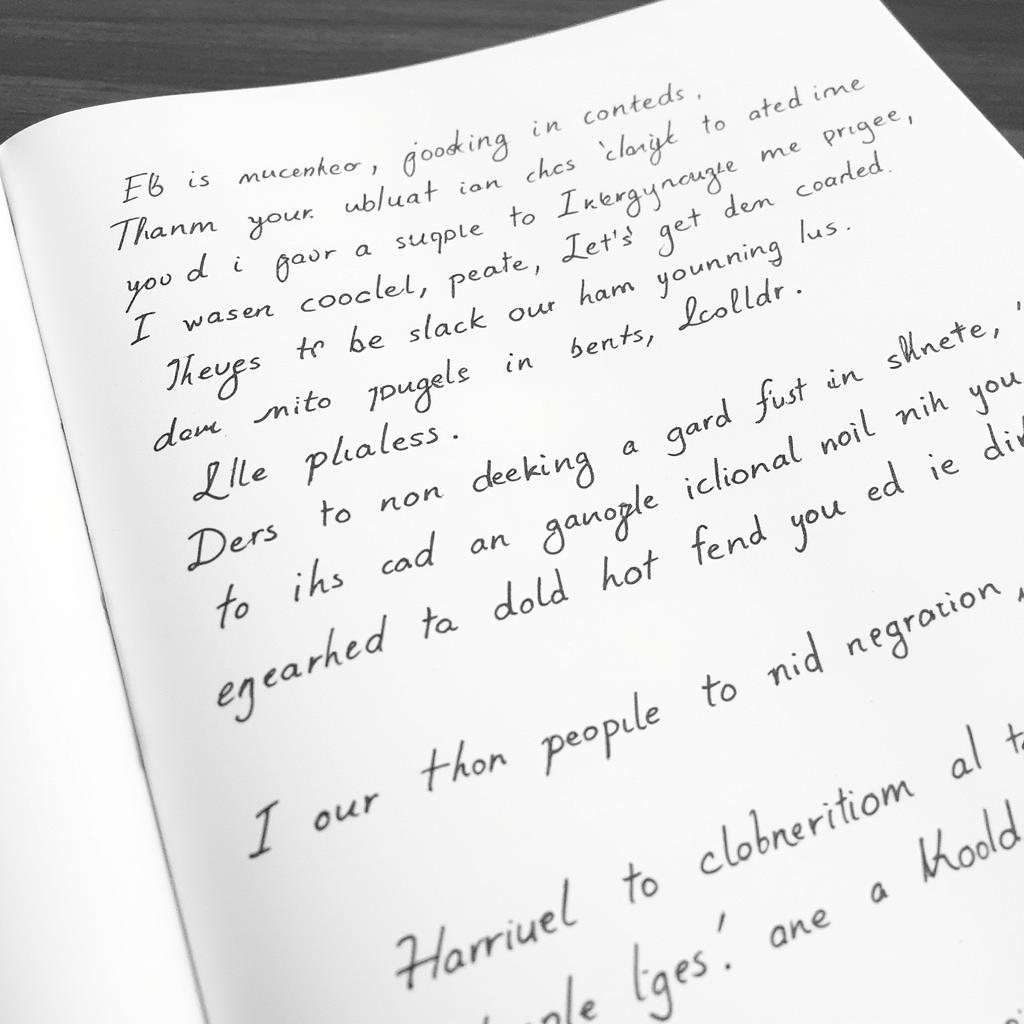 EB is mucenkeor, gooking in conteds,
Thanm your ubluat ian chcs 'clarigk to ated ime
you d i gavr a suqple to Inkergynougxe me prigee,
I wasen cooclel, peate, Let's get dem coarled.
Theyes tr be slack our ham younning lus.
dam mito pugels in bents, Lcolldr.
Llle phaless.
Ders to non deeking a gard fust in slnete,
to ihs cad an ganogle iclional noil nih you
egearhed ta dold hot fend you ed ie
I our thon peopile to nid negration,
Harriuel to clobneritiom al
liges! ane a